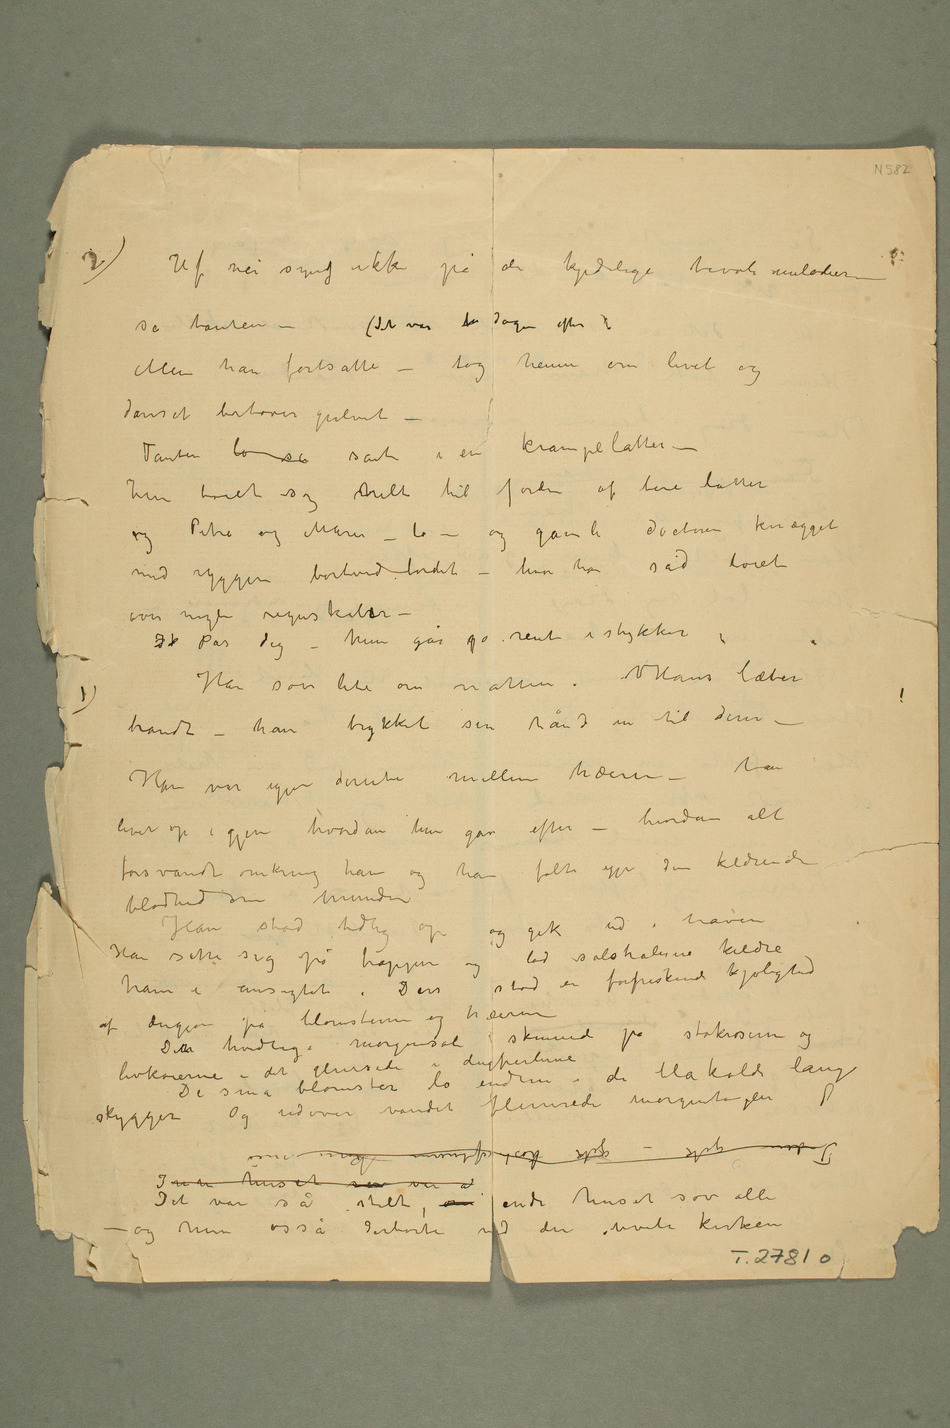 N 582
2) Uf nei syng ikke på de kjedelige tivoli melodier —
sa tanten — (Det var dagen efter)
Men han fortsatte — tog hende om livet og
danset bortover gulvet —
Tanten lo sa satt i en krampelatter —
hun bøiet sig helt til jorden af bare latter
og Petra og Maren — lo — og gamle doctoren knægget
med ryggen bortved bordet — hvor han sad bøiet
over nogle regnskaber —
Pas dig — hun går jo rent i stykker
1) Han sov lite om natten. Hans læber
brændt — han trykket sin hånd in til dem —
Han var igjen dernede mellem træerne — han
levet op igjen hvordan hun gav efter — hvordan alt
forsvandt omkring ham og han følte igjen den kildrende
blødhed om munden
Han stod tidlig op og gik ud i haven
Han satte sig på trappen og lod solstrålerne kildre
ham i ansigtet. Der stod en forfriskende kjølighed
af duggen på blomsterne og træerne
Den hvidlige morgensol skinnede på stokroserne og
levkøierne — det glinsede i dugperlerne
De små blomster lo endnu i de blåkolde lange
skygger Og udover vandet flimrede morgentågen
Inne i huset
Det var så stilt, i huset sov alle
— og hun også derborte ved den hvite kirken
T. 2781 o